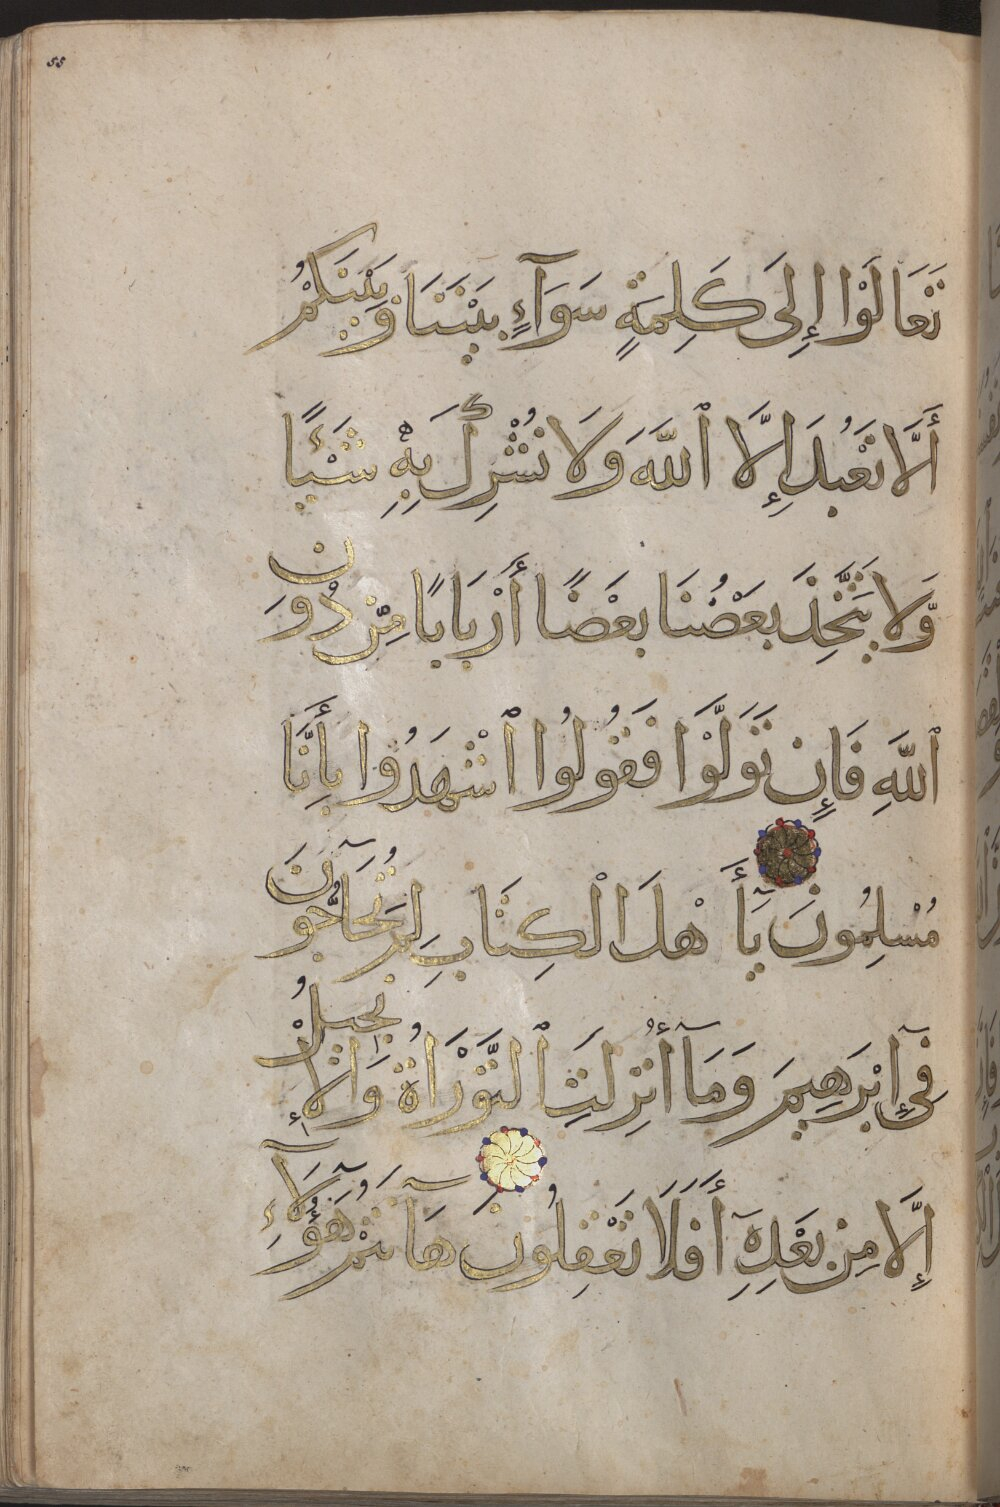 55
تَعَالَوْا إِلَى كَلِمَةٍ سَوَآءٍ بَيْنَنَا وَبَيْنَكُمْ
أَلَّا نَعْبُدَ إِلَّا ٱللَّهَ وَلَا نُشْرِكَ بِهِ شَيْئًا
وَّلَا يَتَّخِذَ بَعْضُنَا بَعْضًا أَرْبَابًا مِّن دُونِ
ٱللَّهِ فَإِن تَوَلَّوْا فَقُولُوا ٱشْهَدُوا بِأَنَّا
مُسْلِمُونَ يَآ أَهْلَ الْكِتَابِ لِمَ تُحَآجُّونَ
فِىٓ إِبْرَهِيمَ وَمَآ أُنْزِلَتِ ٱلتَّوْرَاةُ وَالْإِنْجِيلُ
إِلَّا مِن بَعْدِهِٓ أَفَلَا تَعْقِلُونَ هَآ أَنتُمْ هَٓؤُلَآءِ